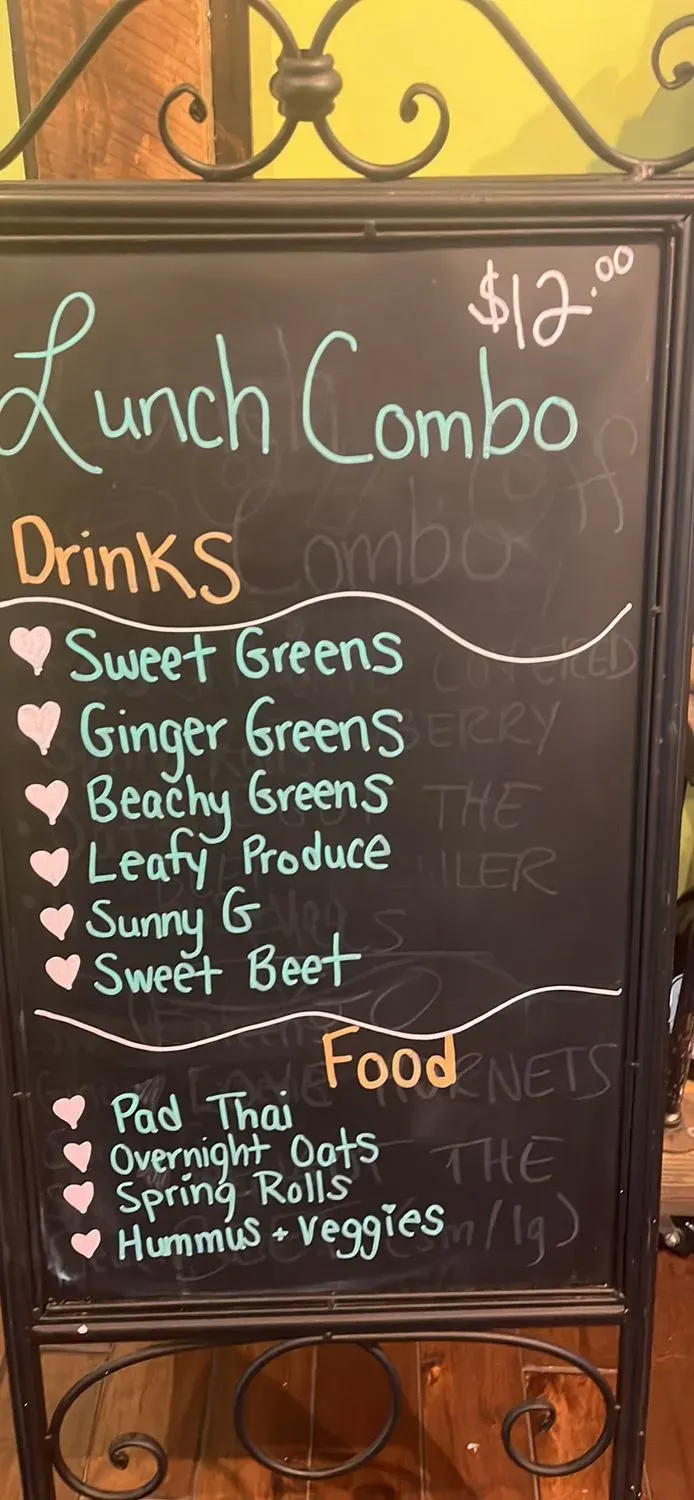 $12.00
Lunch Combo
Drinks
Sweet Greens
Ginger Greens
Beachy Greens
Leafy Produce
Sunny G
Sweet Beet
Food
Pad Thai
Overnight Oats
Spring Rolls
Hummus + Veggies